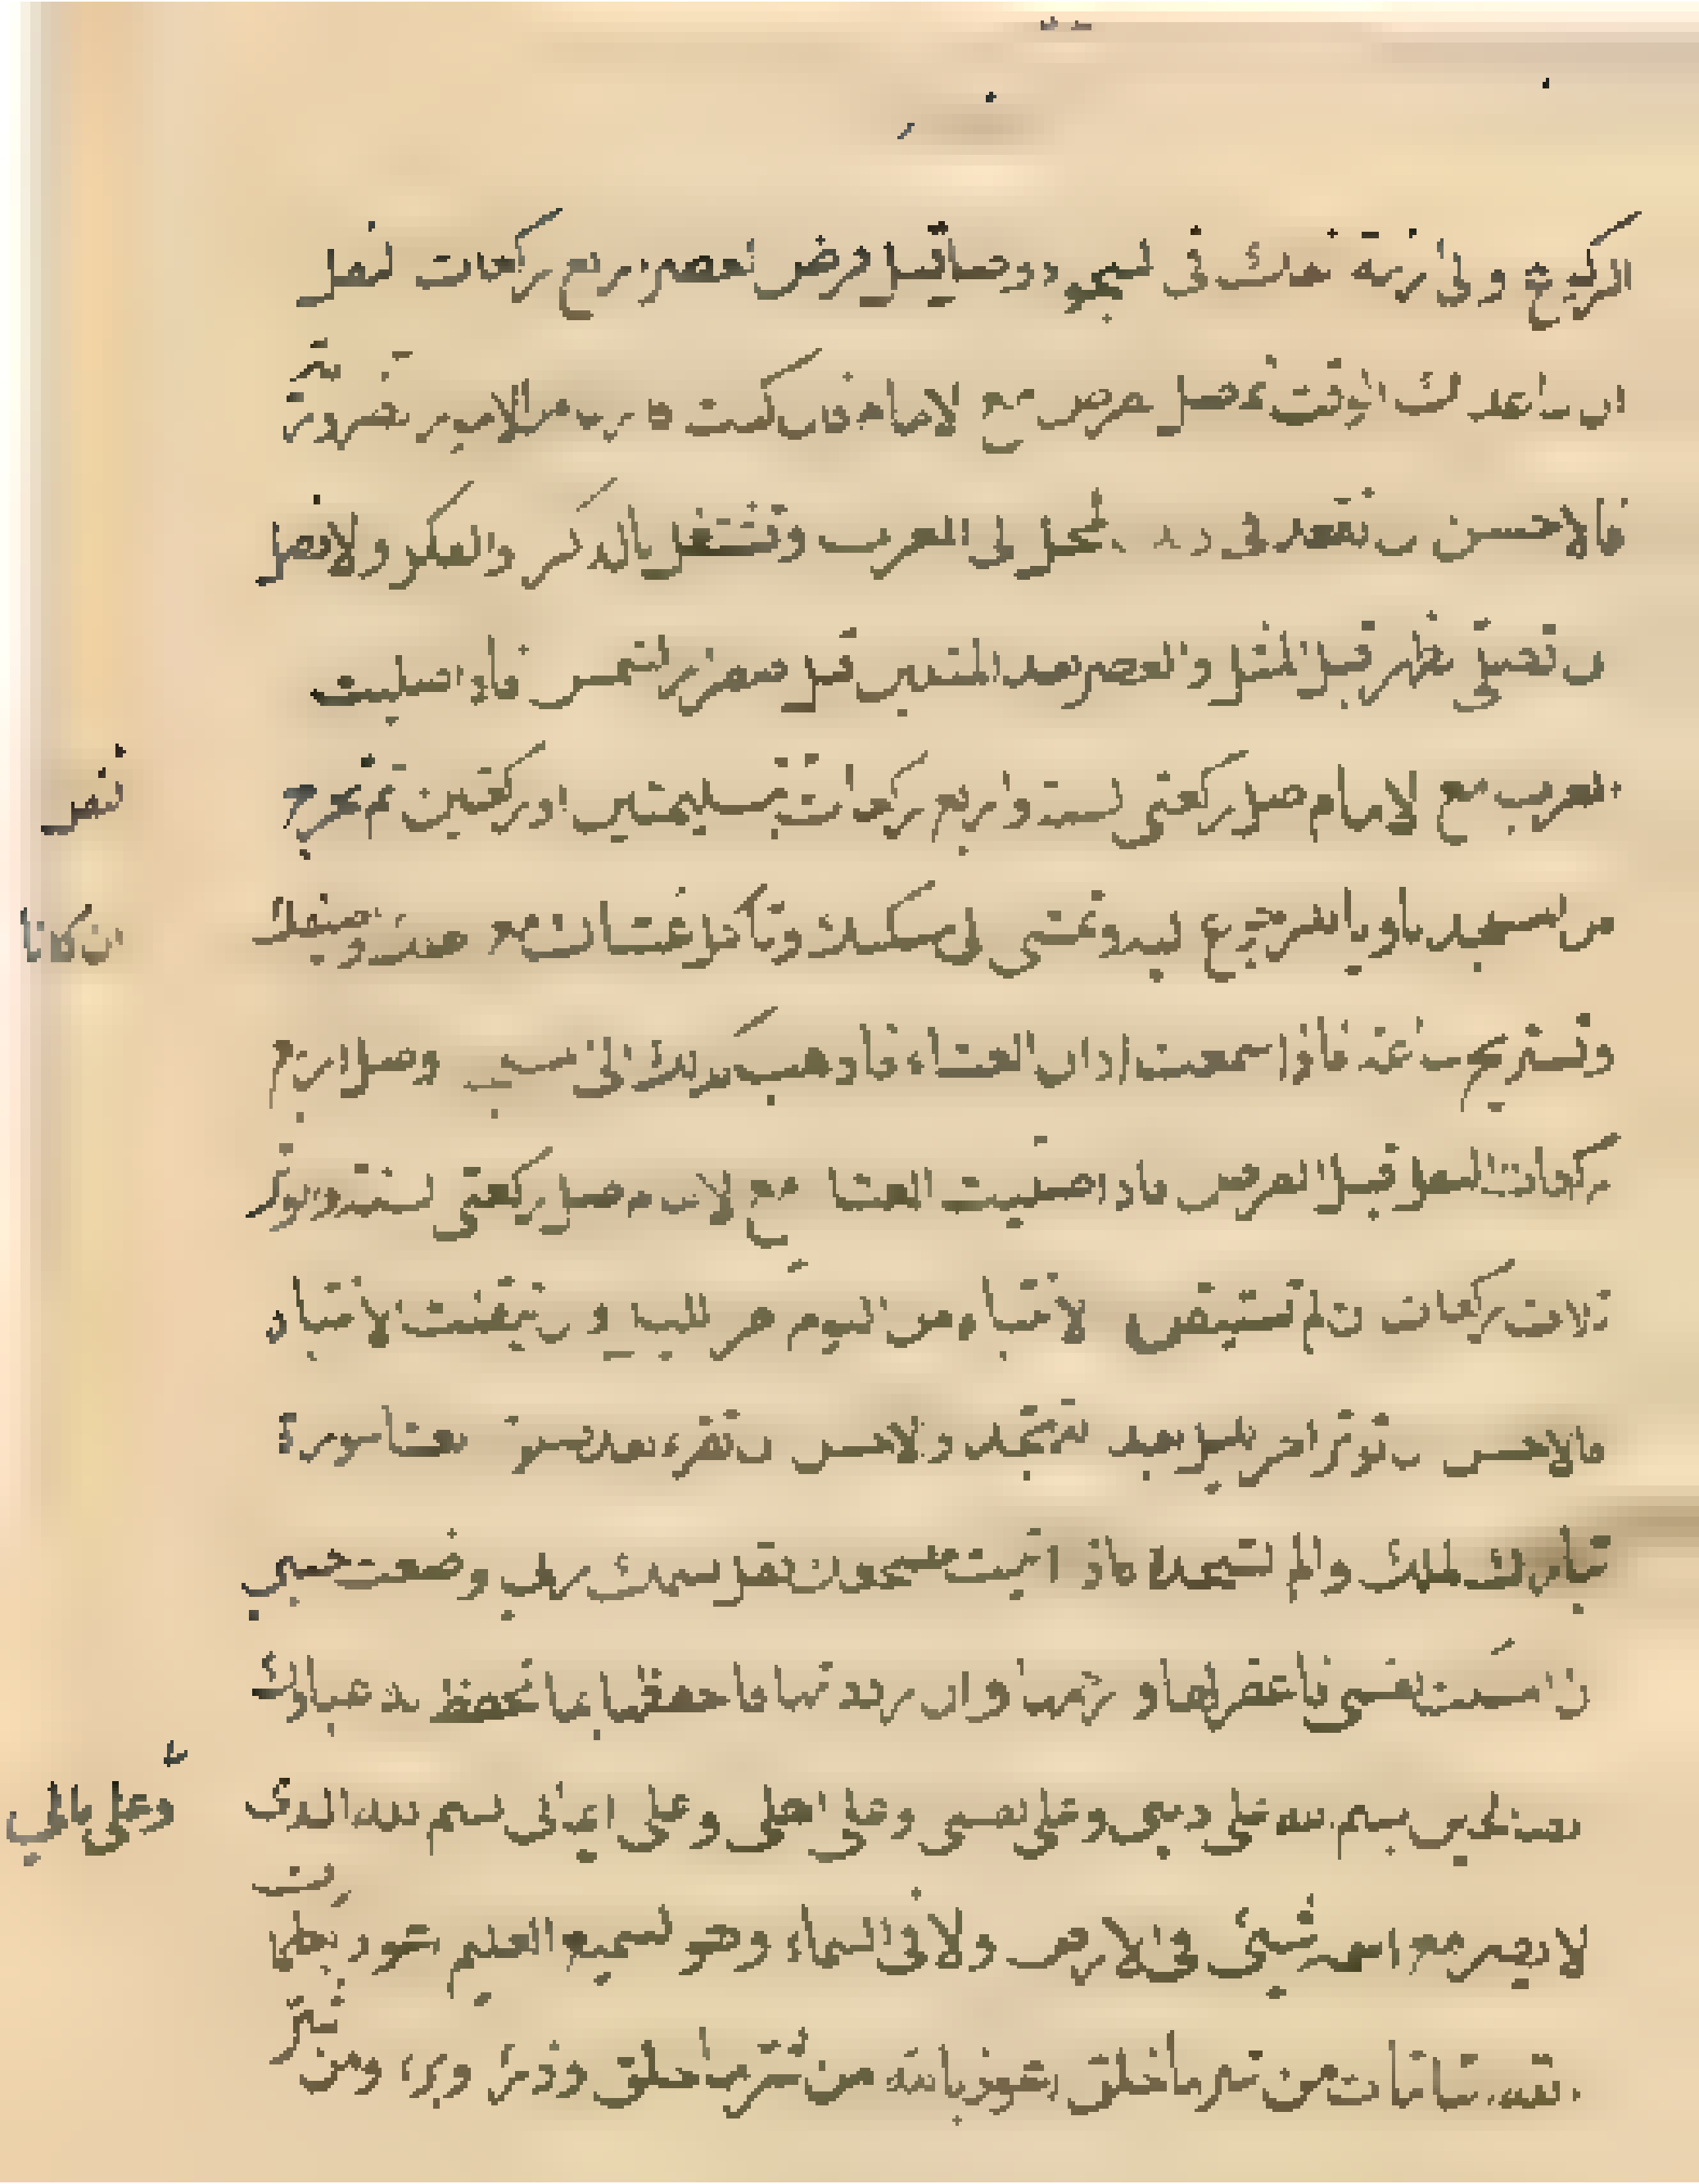 الركوع والى ارنبة انفك فى السجود وصل قبل فرض العصر اربع ركعات نفل
ان ساعدك الوقت ثم صل فرض مع الامام فان كنت من الامور ضرورة
فالاحسن ان تقعد فى المحل الى المغرب وتشتغل بالذكر والفكر والافضل
ان تصلى الظهر قبل المثل والعصر بعد المثلين قبل اصفرار الشمس فاذا صليت
المغرب مع الامام صل ركعتى السنة واربع ركعات بتسليمتين او ركعتين ثم تخرج
من المسجد ناويا الرجوع اليه وتمشى الى مسكنك وتأكل عشائك مع وضيفك
وتستريح ساعة فاذا سمعت اذان العشاء فاذهب الى وصل اربع
ركعات النفل قبل الفرض فاذا صليت العشا مع الامام صل ركعتى السنة والوتر
ثلاث ركعات ان لم تستيقن الانتباه من النوم اخر الليل وان تيقنت الانتباه
فالاحسن ان توتر اخر الليل بعد التهجد والاحسن ان تقرء بعد سنة العشا سورة
تبارك الملك والم السجدة فاذا اتيت مضجعك فقل باسمك ربى وضعت جنبى
ان امسكت نفسى فاغفر لها وارحمها وان رددتها فاحفظها بما تحفظ به عبادك
الصالحين بسم الله على دينى وعلى نفسى وعلى اهلى وعلى ايمانى بسم الله الذى
لا يضر مع اسمه شيئ فى الارض ولا فى السماء وهو السميع العليم اعوذ بكلمات
الله التامات من شر ما خلق اعوذ بالله من شر ما خلق وذرء وبرء ومن شر
نفل
ان كانا
وعلى مالي